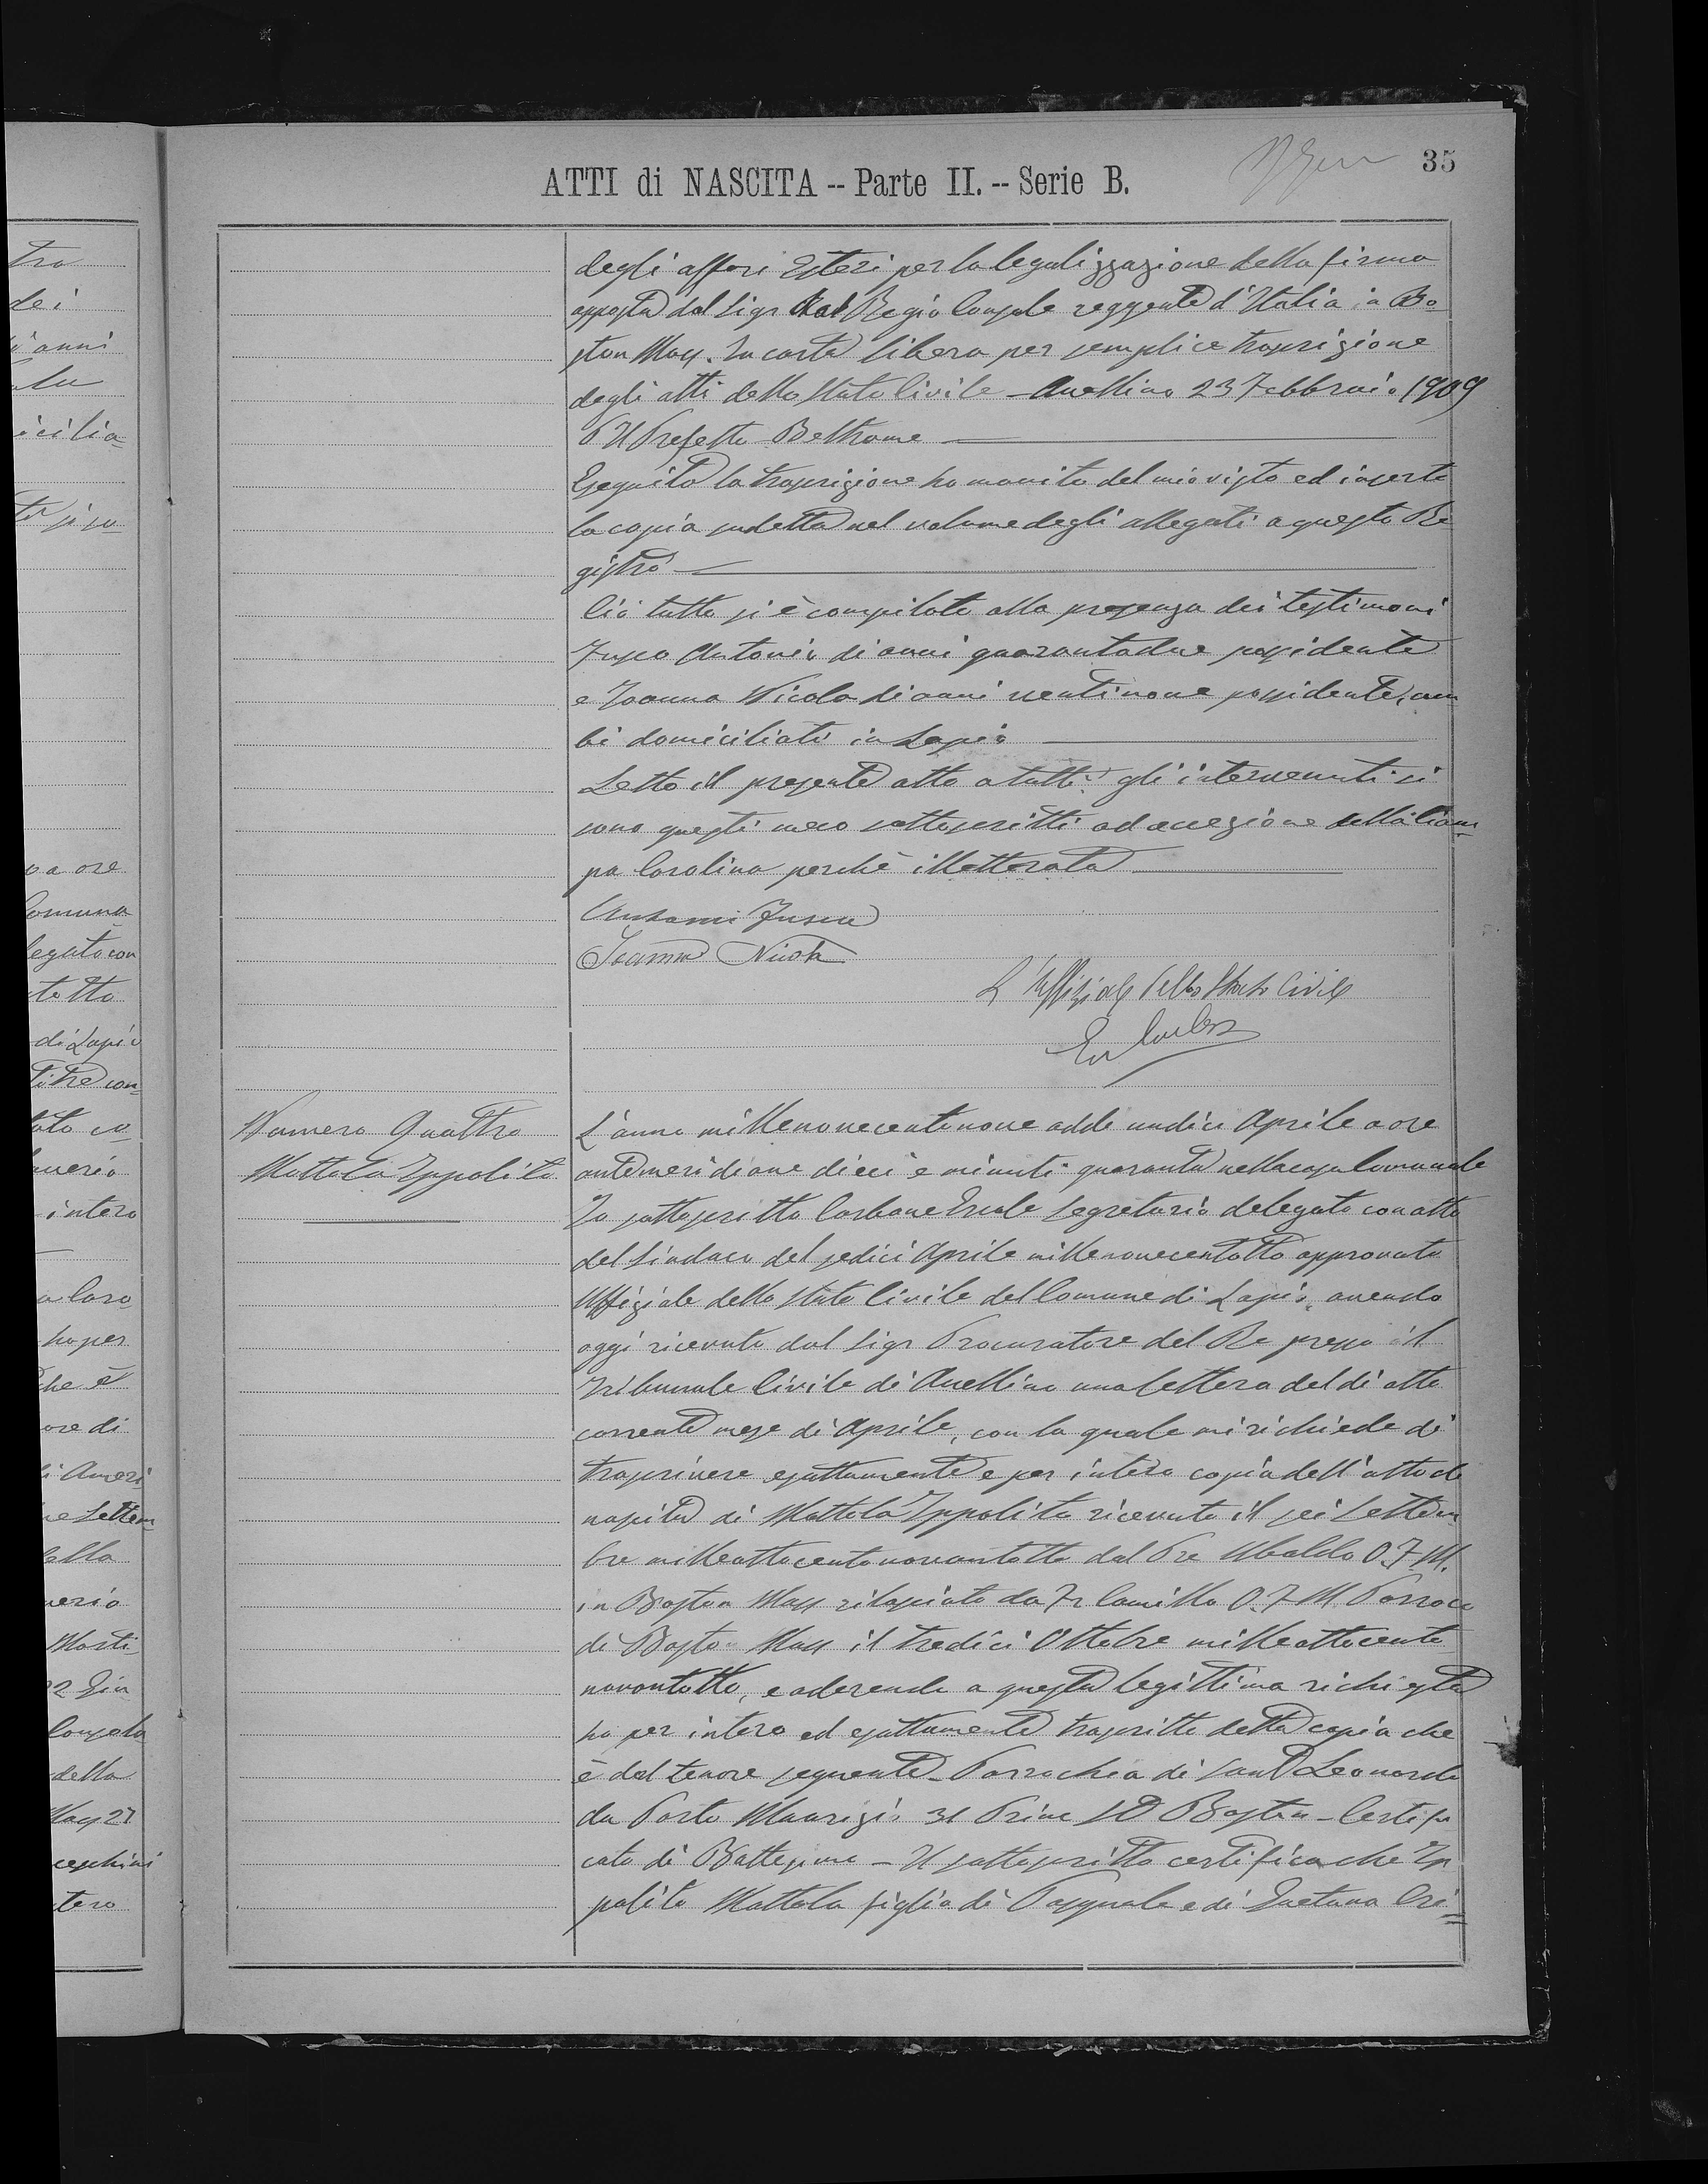 35
ATTI di NASCITA -- Parte II. -- Serie B.
degli affari Esteri per la legalizzazione della firma
apposta dal Sigr Regio Console reggente d'Italia in Bo-
ston Mass. In carta libera per semplice trascrizione
degli atti dello Stato Civile - Avellino 23 Febbraio 1909
P Il Prefetto Beltrame
Eseguita la trascrizione ho munito del mio visto ed inserto
la copia sudetta nel volume degli allegati a questo Re
gistro
Ciò tutto si è compilato alla presenza dei testimoni
Fusco Antonio di anni quarantadue possidente
e Joanna Nicola di anni ventinove possidente, am
bi domiciliati in Lapio
Letto il presente atto a tutti gli intervenuti si
sono questi meco sottoscritti ad eccezione della Ciam
pa Carolina perchè illetterata
Fusco
Joanna Nicola
L'Uffiziale dello Stato Civile
Numero Quattro
Mottola Ippolito
L'anno millenovecentonove addì undici Aprile a ore
antemeridiane dieci e minuti quaranta nella casa Comunale
Io sottoscritto Carbone Ercole Segretario delegato con atto
del Sindaco del sedici Aprile millenovecentotto approvato
Uffiziale dello Stato Civile del Comune di Lapio, avendo
oggi ricevuto dal Sigr Procuratore del Re presso il
Tribunale Civile di Avellino una lettera del dì otto
corrente mese di Aprile, con la quale mi richiede di
trascrivere esattamente e per intero copia dell'atto di
nascita di Mottola Ippolito ricevuto il sei Settem
bre milleottocentonovantotto dal Pre Ubaldo O.F.M.
in Boston Mass rilasciato da Fr Camillo O.F.M. Parroco
di Boston Mass il tredici Ottobre milleottocento
novantotto, e aderendo a questa legittima richiesta
ho per intero ed esattamente trascritto detta copia che
è del tenore seguente - Parrochia di San Leonardo
da Porto Maurizio 31 Prince St Boston - Certifi
cato di Battesimo - Il sottoscritto certifica che Ip
polito Mottola figlio di Pasquale e di Gaetana Cri=